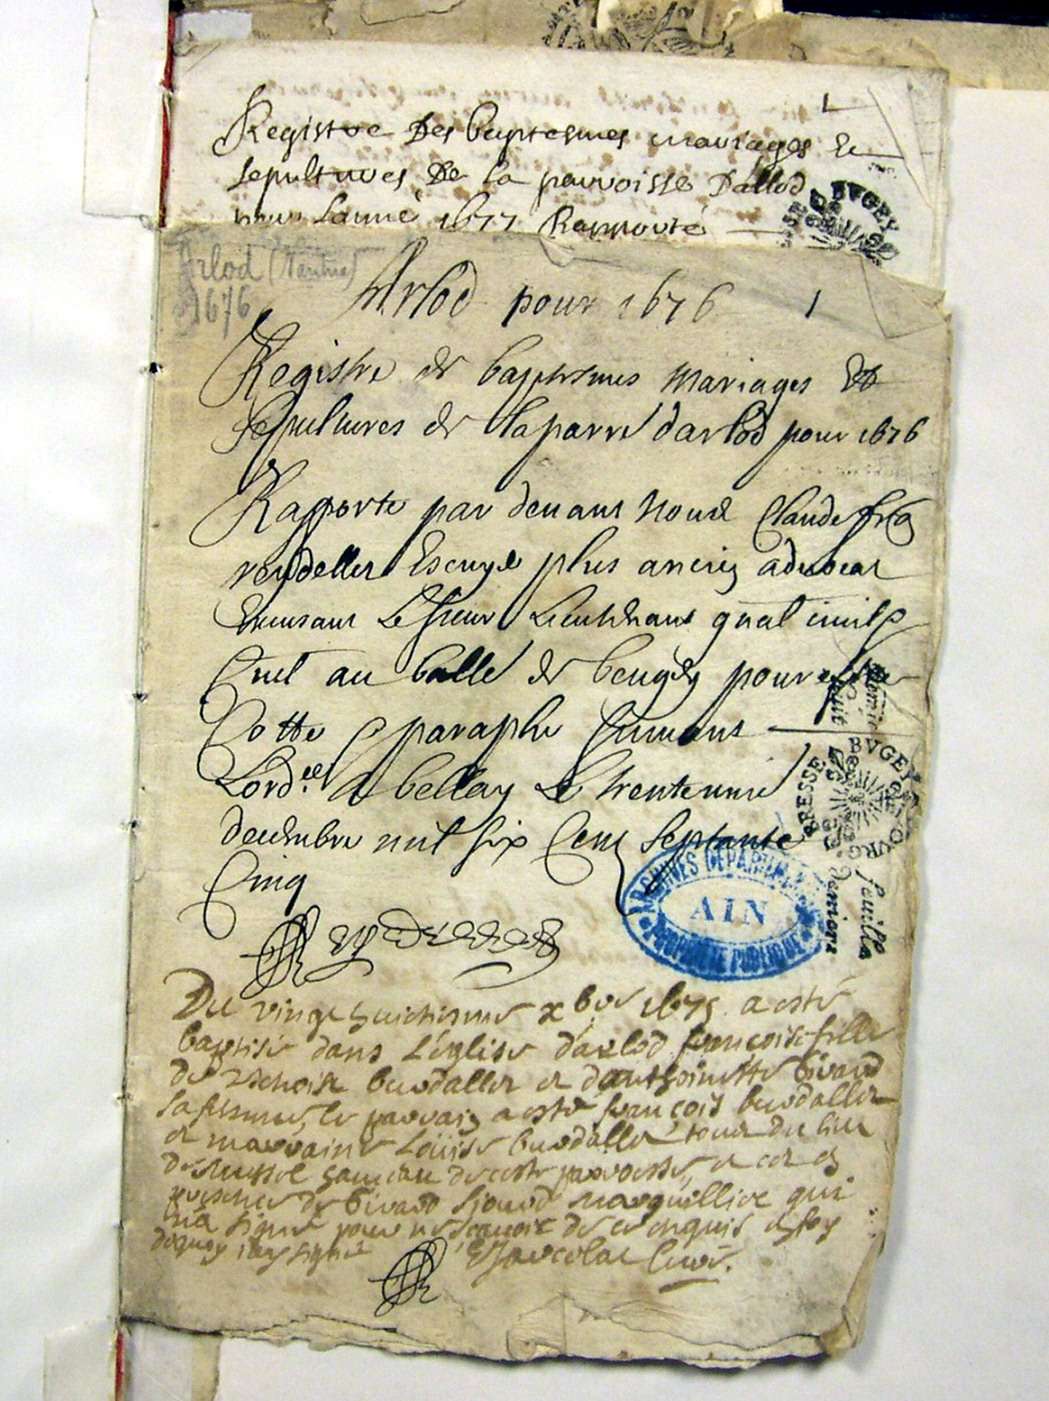 1
Registre Des baptesmes mariages Et
sepultures De la parroisse Dallod
pour Lanné 1677 Rapporté
BVGEY
Arlod (Nantua)
1676
Arlod pour 1676 1
Registre de baptesmes Mariages Et
Sepultures de la parre darlod pour 1676
Rapporte par deuant Nous Claude
Escuye plus ancien aduocat
Le sieur Lieutenant gnal ciuil
Cruel au balle de beugey pour estre
Cotte paraphe suiuant
Lord.ce A bellay Le trente unie
decembre mil six Cent septante
Cinq
BRESSE BVGEY
feuille
ARCHIVES DEPARTEMENTALES
AIN
PROPRIETE PUBLIQUE
Du vingt huictiesme xbre 1675 a esté
baptisée dans Léglise darlod françoise fille
de burdallet et danthoinette Girard
sa femme, le parrain a esté françois burdallet
et marraine Loüise burdallet tous du lieu
de hameau de ceste parroisse, et ce en
presence de Girard marguillier qui
n'a signé pour ne sçauoir de ce enquis en foy
dequoy iay signé curé.